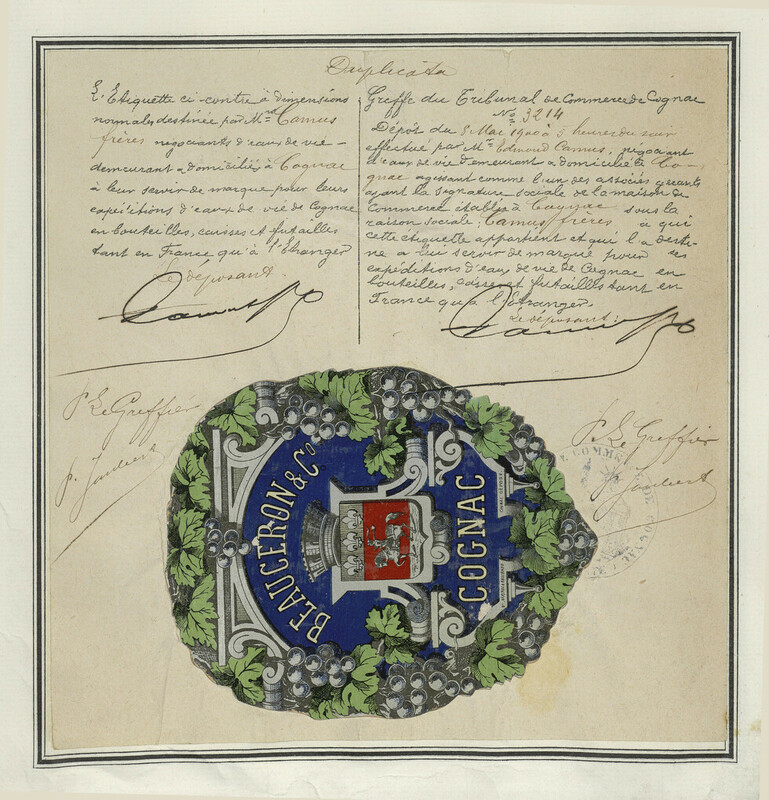 Duplicata
L'Etiquette ci-contre à dimensions
normales destinée par Mrs Camus
frères négociants d'eaux de vie
demeurant & domiciliés à Cognac
à leur servir de marque pour leurs
expéditions d'eaux de vie de Cognac
en bouteilles, caisses et futailles
tant en France qu'à l'Etranger
Le déposant.
Camus
Greffe du Tribunal de Commerce de Cognac
No 3214
Dépôt du 8 Mai 1900 à 5 heures du soir
effectué par Mr Edmond Camus, négociant
d'eaux de vie demeurant & domicilié à Co-
gnac agissant comme l'un des associés gérants
ayant la signature sociale de la maison de
Commerce établie à Cognac sous la
raison sociale: Camus frères à qui
cette étiquette appartient et qui l'a desti-
née à lui servir de marque pour ses
expéditions d'eaux de vie de Cognac en
bouteilles, caisses et futailles tant en
France qu'à l'Etranger.
Le déposant:
Camus
P. Le Greffier
P. Le Greffier
BEAUCERON & Co
COGNAC